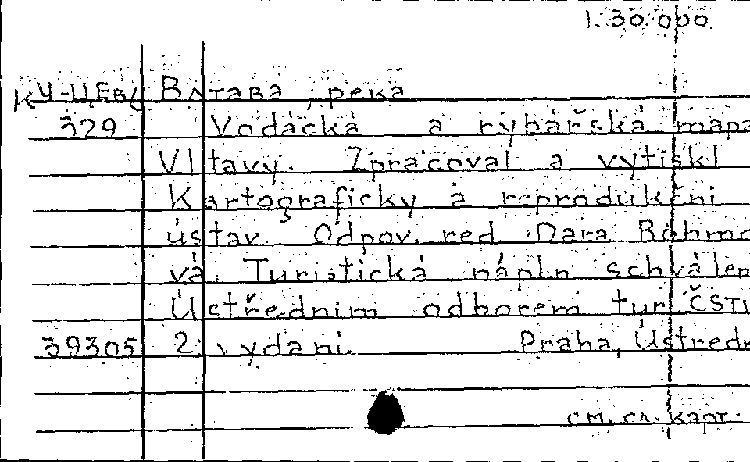 1:30.000
КУ-ЦЕВ/ Влтава, река
329 Vodácká a rybářská mapa
Vltavy. Zpracoval a vytiskl
Kartografický a reprodukční
ústav. Odpov. red. Dara
vá. Turistická náplň schválen
Ústředním odborem tur. ČSTV
39305 2. vydání. Praha, Ústředn
см. сл. карт.